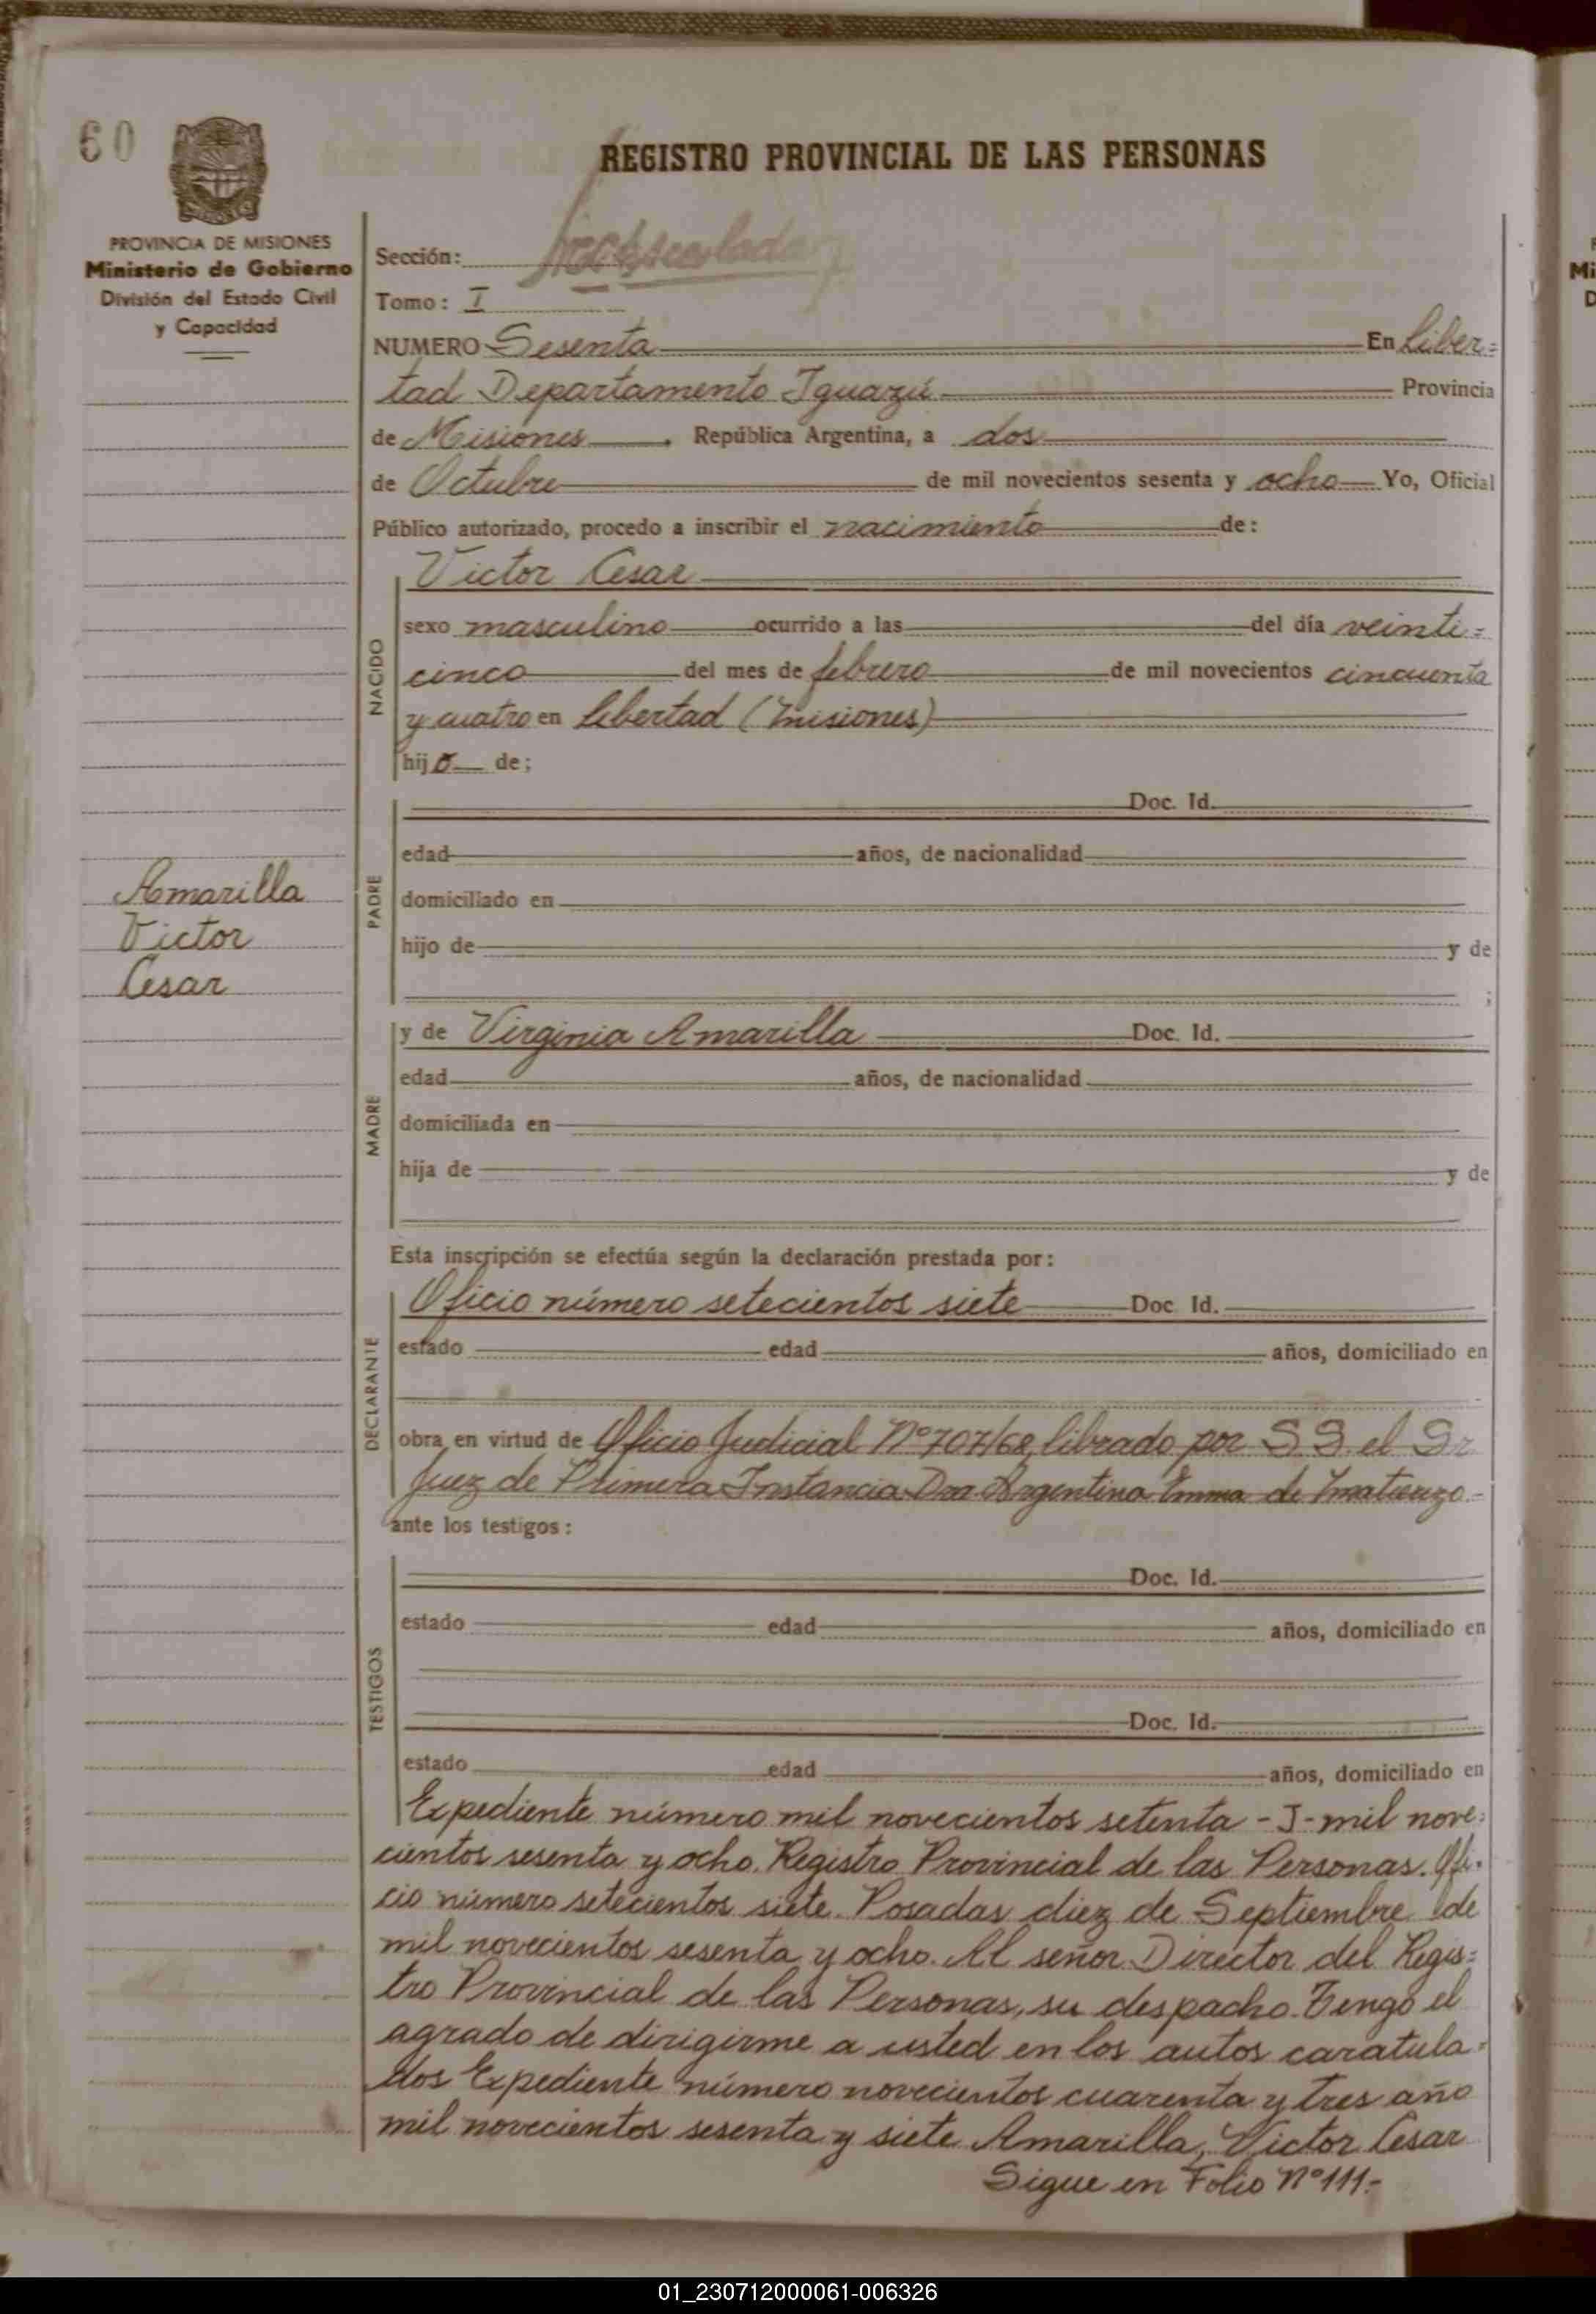 60
REGISTRO PROVINCIAL DE LAS PERSONAS
PROVINCIA DE MISIONES
Ministerio de Gobierno
División del Estado Civil
y Capacidad
Sección:
Tomo: I
NUMERO Sesenta En Liber=
tad Departamento Iguazú Provincia
de Misiones. República Argentina, a dos
de Octubre de mil novecientos sesenta y ocho Yo, Oficial
Público autorizado, procedo a inscribir el nacimiento de:
NACIDO
Victor Cesar
sexo masculino ocurrido a las del día veinti=
cinco del mes de febrero de mil novecientos cincuenta
y cuatro en libertad (Misiones)
hijo de;
Amarilla
Victor
Cesar
PADRE
Doc. Id.
edad años, de nacionalidad
domiciliado en
hijo de y de
;
MADRE
y de Virginia Amarilla Doc. Id.
edad años, de nacionalidad
domiciliada en
hija de y de
Esta inscripción se efectúa según la declaración prestada por:
DECLARANTE
Oficio número setecientos siete Doc. Id.
estado edad años, domiciliado en
obra en virtud de Oficio Judicial Nº 707/68, librado por S S el Sr
Juez de Primera Instancia Dra. Argentina Emma de
ante los testigos:
TESTIGOS
Doc. Id.
estado edad años, domiciliado en
Doc. Id.
estado edad años, domiciliado en
Expediente número mil novecientos setenta - J - mil nove=
cientos sesenta y ocho. Registro Provincial de las Personas. Ofi=
cio número setecientos siete. Posadas diez de Septiembre de
mil novecientos sesenta y ocho. Al señor Director del Regis=
tro Provincial de las Personas, su despacho. Tengo el
agrado de dirigirme a usted en los autos caratula=
dos Expediente número novecientos cuarenta y tres año
mil novecientos sesenta y siete Amarilla, Victor Cesar
Sigue en Folio Nº 111.-
01_230712000061-006326